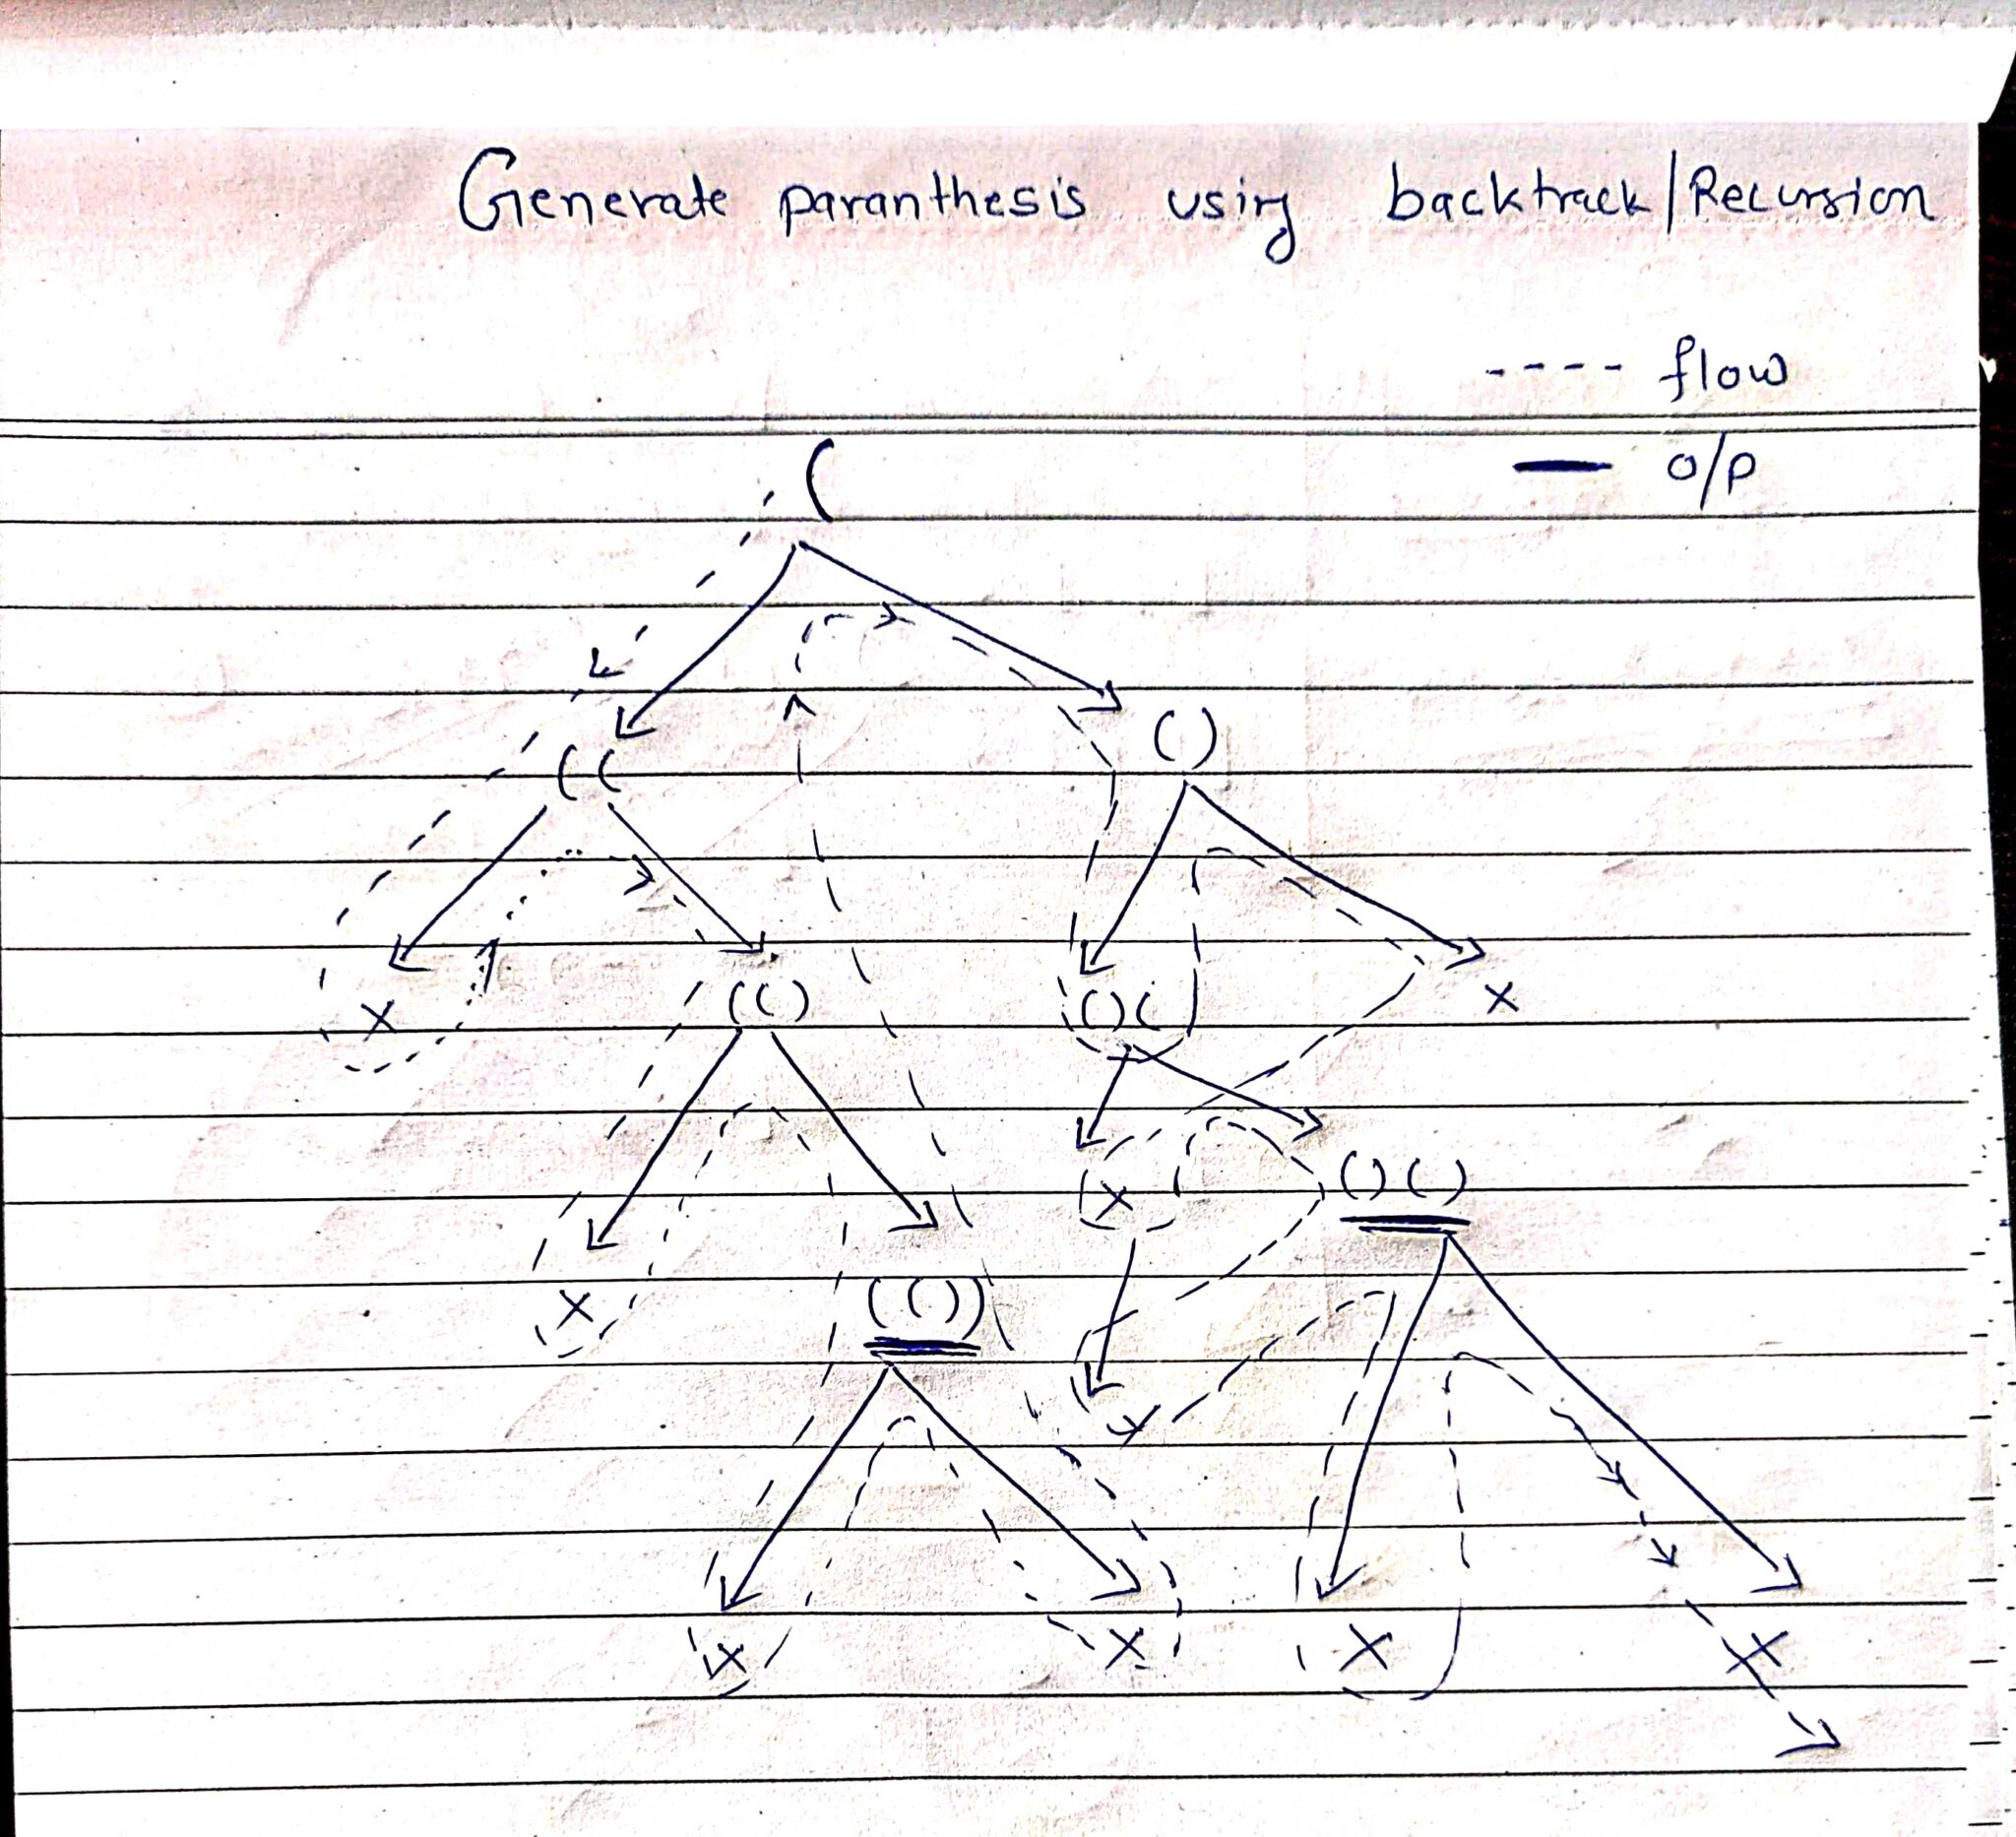 Generate paranthesis using backtrack/Recursion
---- flow
— o/p
(
(( ()
X (() ()( X
X (()) X ()()
X X X X